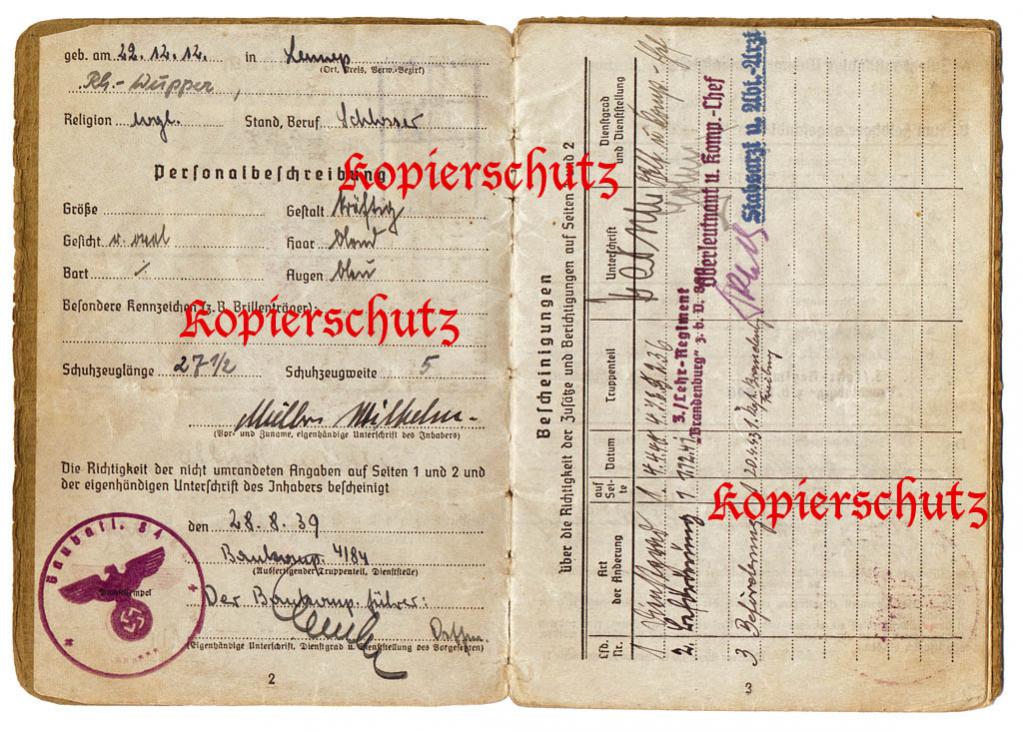 geb. am 22.12.12. in Lennep
(Ort, Kreis, Verw.-Bezirk)
Rh.-Wupper,
Religion evgl. Stand, Beruf Schlosser
Personalbeschreibung
Kopierschutz
Größe Gestalt kräftig
Gesicht oval Haar blond
Bart / Augen blau
Besondere Kennzeichen (z. B. Brillenträger):
Kopierschutz
Schuhzeuglänge 27 1/2 Schuhzeugweite 5
Müller Wilhelm
(Vor- und Zuname, eigenhändige Unterschrift des Inhabers)
Die Richtigkeit der nicht umrandeten Angaben auf Seiten 1 und 2 und
der eigenhändigen Unterschrift des Inhabers bescheinigt
Baubatl. 84
den 28.8.39
Baukomp. 4/84
(Ausfertigender Truppenteil, Dienststelle)
Der Baukomp.führer:
(Eigenhändige Unterschrift, Dienstgrad u. Dienststellung des Vorgesetzten)
2
Bescheinigungen
über die Richtigkeit der Zusätze und Berichtigungen auf Seiten 1 und 2
Lfd. Nr.
Art der Änderung
auf Seite
Datum
Truppenteil
Unterschrift
Dienstgrad und Dienststellung
1
2. Beförderung 1
3./Lehr-Regiment
„Brandenburg“ z. b. V. 800
Oberleutnant u. Komp.-Chef
3 Beförderung 1 20.4.43
Stabsarzt u. Abt.-Arzt
Kopierschutz
3